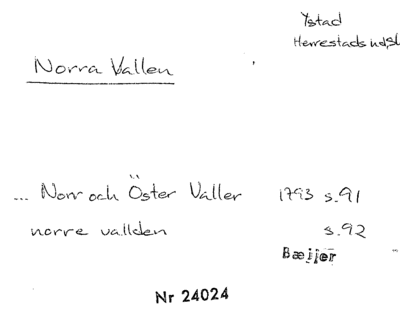 Ystad
Herrestads ind.sl
Norra Vallen
... Norr och Öster Valler 1793 s.91
norre vallden s.92
Bæijer
Nr 24024